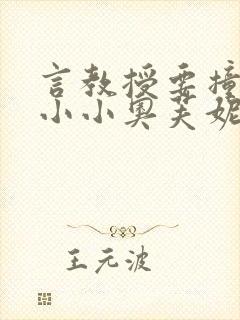 言教授要撞
小小奥芙妮
王元波